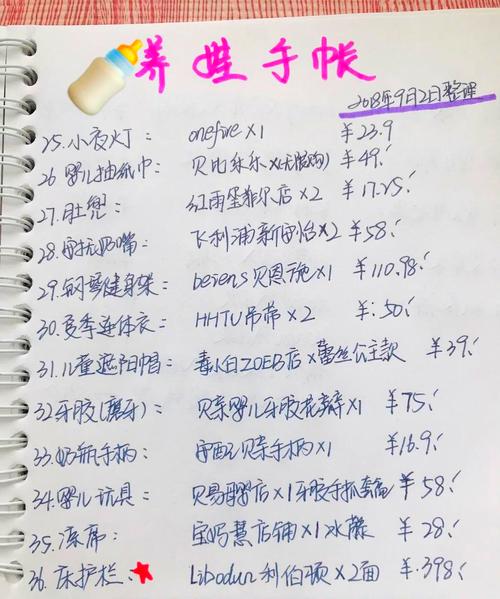 养娃手帐
2018年9月2日整理
25.小夜灯： onefire×1 ￥23.9
26 婴儿抽纸巾： 贝比乐乐×(优惠购) ￥49.
27.肚兜： 红雨蛋 店×2 ￥17.25.
28.安抚奶嘴： 飞利浦新安怡×2 ￥58.
29.钢琴健身架： beiens贝恩施×1 ￥110.98.
30.夏季连体衣： HHTU吊带×2 ￥:50.
31.儿童遮阳帽： 毒小白ZOEB店×蕾丝公主款 ￥39.
32牙胶(磨牙)： 贝亲婴儿牙胶花瓣×1 ￥75.
33.奶瓶手柄： 贝亲手柄×1 ￥16.9.
34.婴儿玩具： 贝易 店×1牙胶手抓套 ￥58.
35.凉席： 宝妈慧店铺×1冰藤 ￥28.
36.床护栏： Libodun利伯顿×2面 ￥.398.